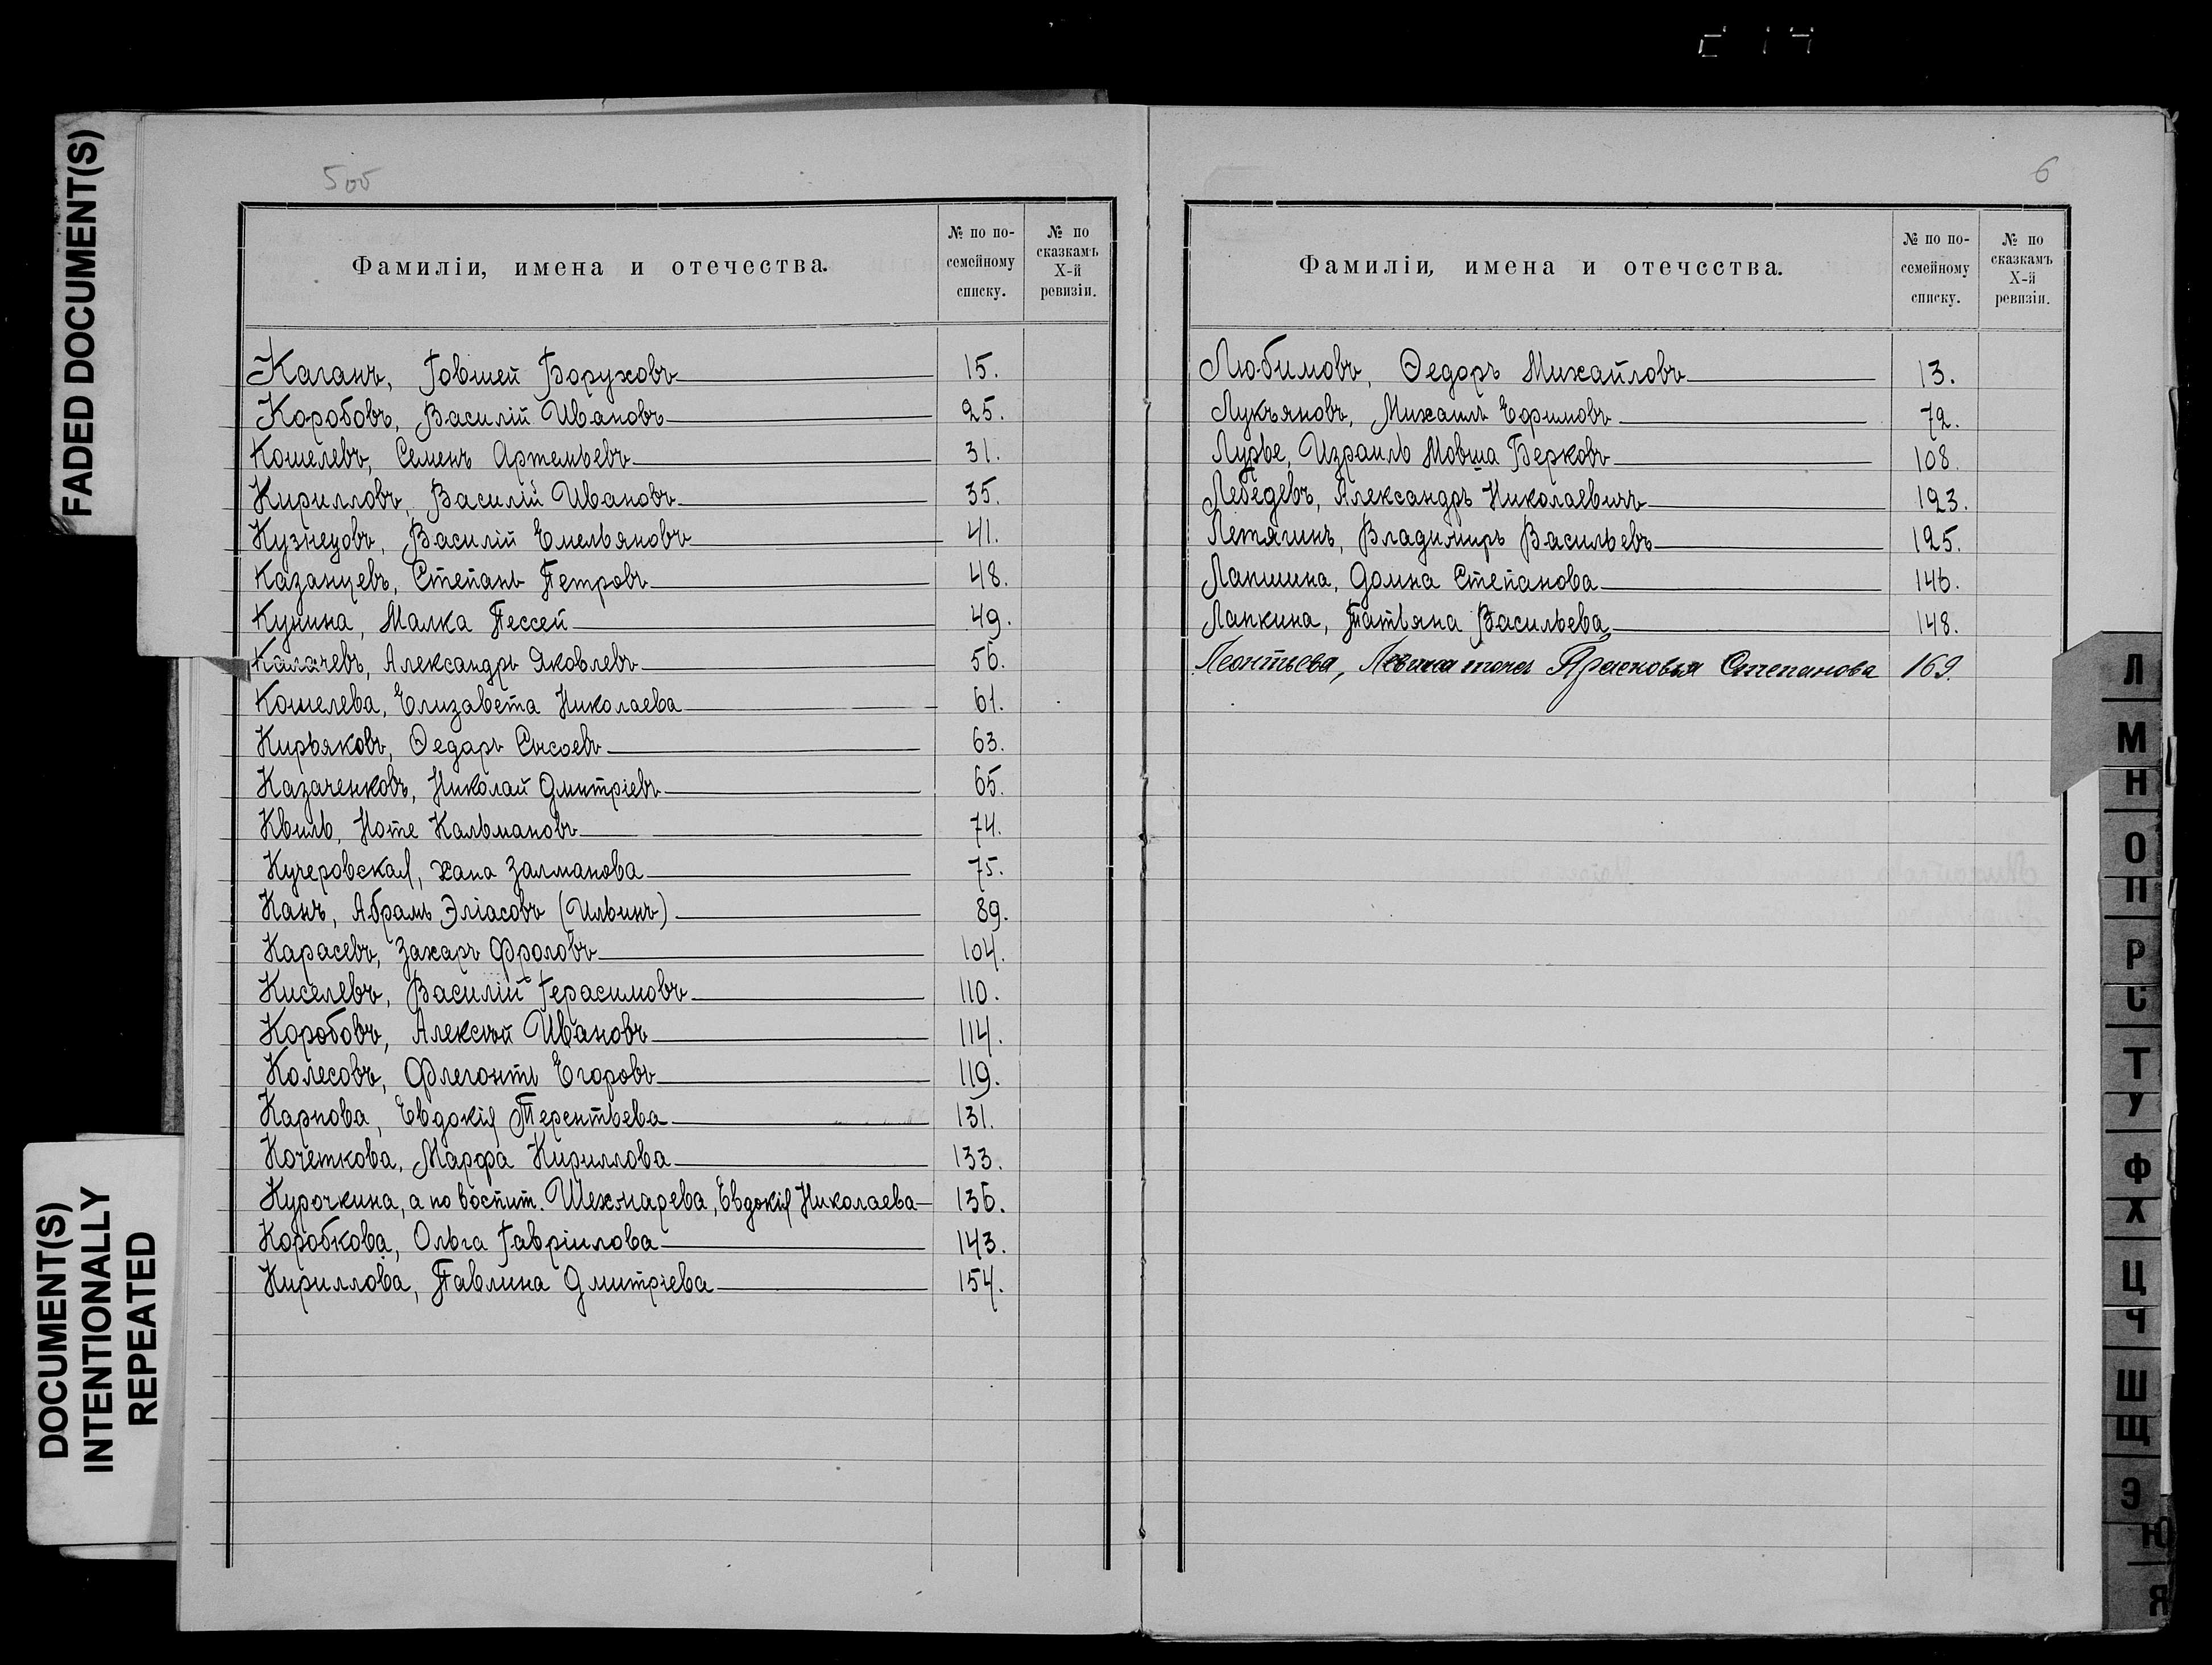 FADED DOCUMENT(S)
DOCUMENT(S)
INTENTIONALLY
REPEATED
Фамиліи, имена и отечества.
№ по по-
семейному
списку.
№ по
сказкамъ
X-й
ревизіи.
Каганъ, Говшей Боруховъ 15.
Коробовъ, Василій Ивановъ 25.
Кошелевъ, Семенъ Артемьевъ 31.
Кирилловъ, Василій Ивановъ 35.
Кузнецовъ, Василій Емельяновъ 41.
Казанцевъ, Степанъ Петровъ 48.
Кунина, Малка Пессей 49.
Калачевъ, Александръ Яковлевъ 56.
Кошелева, Елизавета Николаева 61.
Кирьяковъ, Ѳедоръ Сысоевъ 63.
Казаченковъ, Николай Дмитріевъ 65.
Квиль, Ноте Кальмановъ 74.
Кучеровская, Хана Залманова 75.
Канъ, Абрамъ Эліасовъ (Ильинъ) 89.
Карасевъ, Захаръ Фроловъ 104.
Киселевъ, Василій Герасимовъ 110.
Коробовъ, Алексѣй Ивановъ 114.
Колесовъ, Флегонтъ Егоровъ 119.
Карпова, Евдокія Терентьева 131.
Кочеткова, Марфа Кириллова 133.
Курочкина, а по воспит. Шехмарева, Евдокія Николаева 136.
Коробкова, Ольга Гавріилова 143.
Кириллова, Павлина Дмитріева 154.
6
Фамиліи, имена и отечества.
№ по по-
семейному
списку.
№ по
сказкамъ
X-й
ревизіи.
Любимовъ, Ѳедоръ Михайловъ 13.
Лукъяновъ, Михаилъ Ефимовъ 72.
Лурье, Израиль Мовша Берковъ 108.
Лебедевъ, Александръ Николаевичъ 123.
Летягинъ, Владимиръ Васильевъ 125.
Лапшина, Домна Степанова 146.
Лапкина, Татьяна Васильева 148.
Леонтьева, Прасковья Степанова 169.
Л
М
Н
О
П
Р
С
Т
У
Ф
Х
Ц
Ч
Ш
Щ
Э
Ю
Я